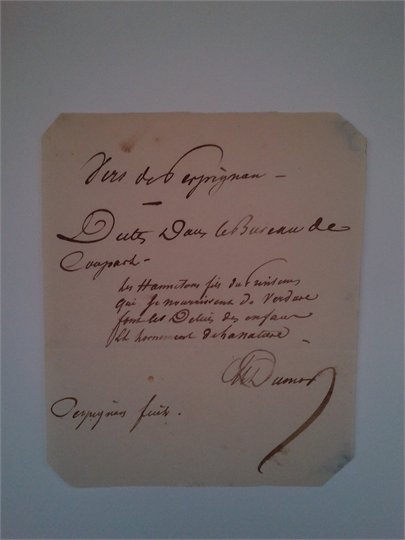 Vers de Perpignan —
Dictés Dans le Bureau de
Les Hannetons fils du Printems
qui se nourrissent de Verdure
font les Delices des enfans
Et lornement de la nature
Perpignan fecit.